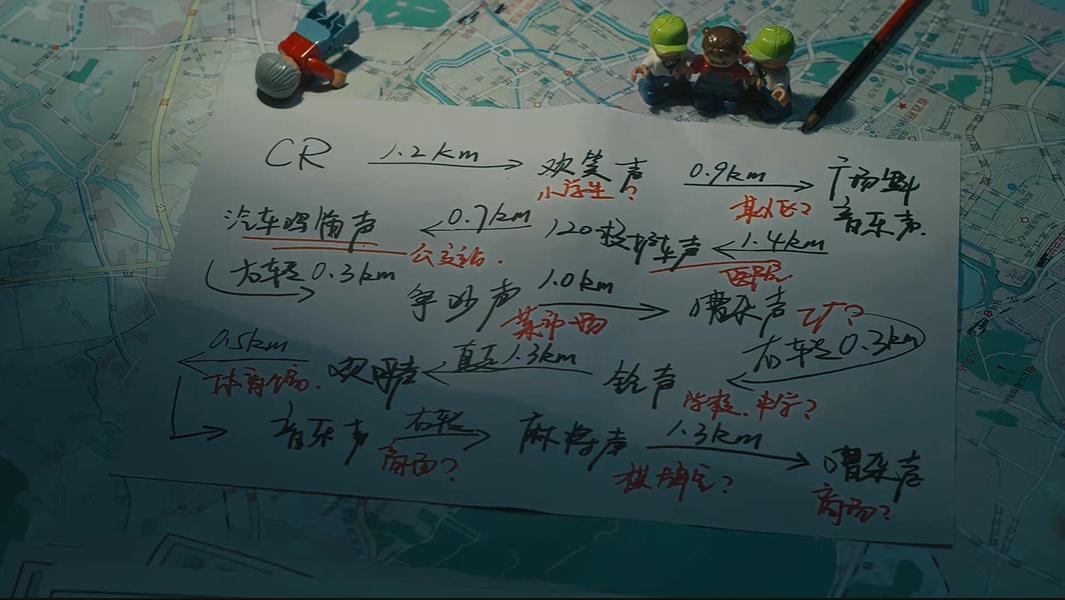 CR 1.2km 欢笑声 0.9km 广场舞
小学生? 某小区? 音乐声.
汽车鸣笛声 0.7km 120救护车声 1.4km
公交站. 医院.
右转 0.3km 争吵声 1.0km 嘈杂声
菜市场 工厂?
右转 0.3km
0.5km 欢呼声 直走 1.3km 铃声
体育场. 学校. 中学?
音乐声 右转 麻将声 1.3km 嘈杂声
商场? 棋牌室? 商场?